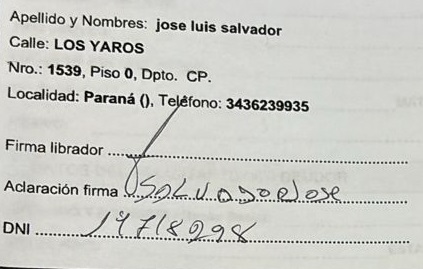 Apellido y Nombres: jose luis salvador
Calle: LOS YAROS
Nro.: 1539, Piso 0, Dpto. CP.
Localidad: Paraná (), Teléfono: 3436239935
Firma librador
Aclaración firma SALVADOR Jose
DNI